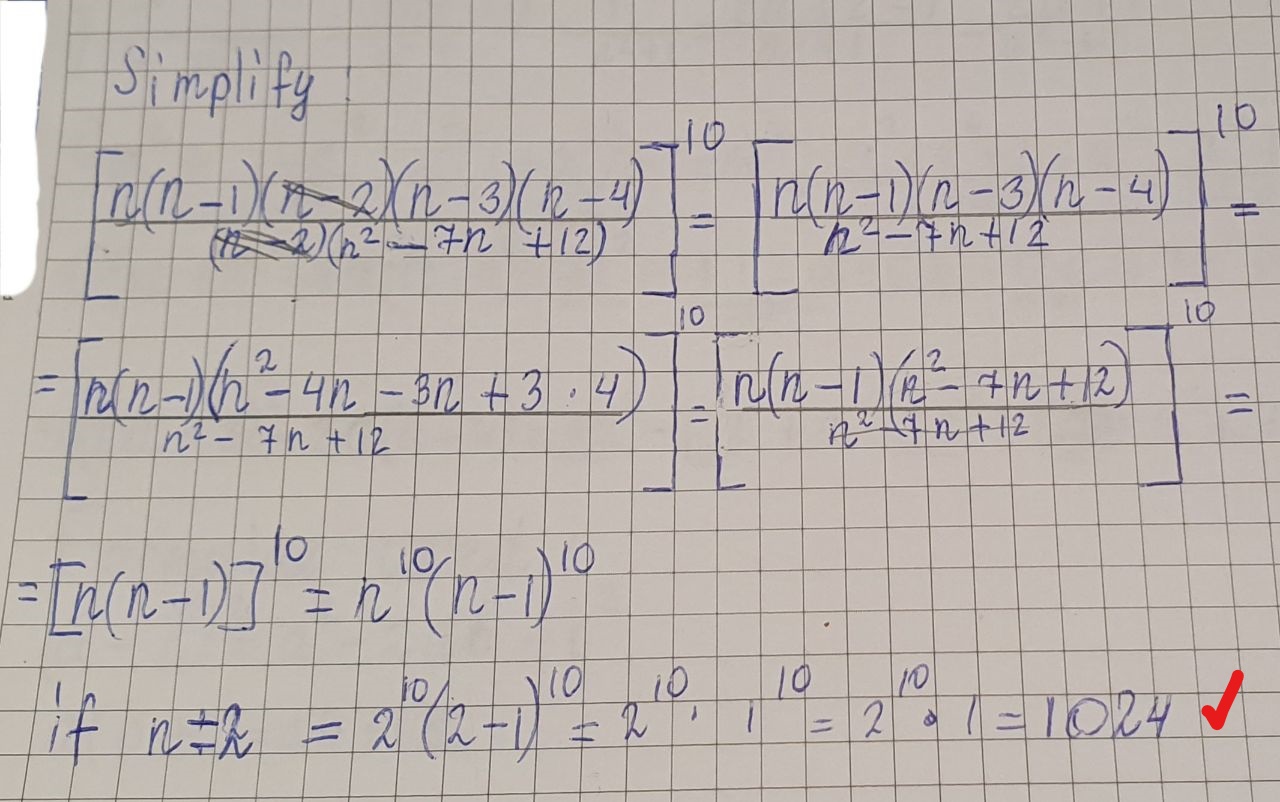 Simplify!
[n(n-1)(n-2)(n-3)(n-4) / (n-2)(n²-7n+12)]¹⁰ = [n(n-1)(n-3)(n-4) / n²-7n+12]¹⁰ =
= [n(n-1)(n²-4n-3n+3·4) / n²-7n+12]¹⁰ = [n(n-1)(n²-7n+12) / n²-7n+12]¹⁰ =
= [n(n-1)]¹⁰ = n¹⁰(n-1)¹⁰
if n=2 = 2¹⁰(2-1)¹⁰ = 2¹⁰·1¹⁰ = 2¹⁰·1 = 1024 ✓